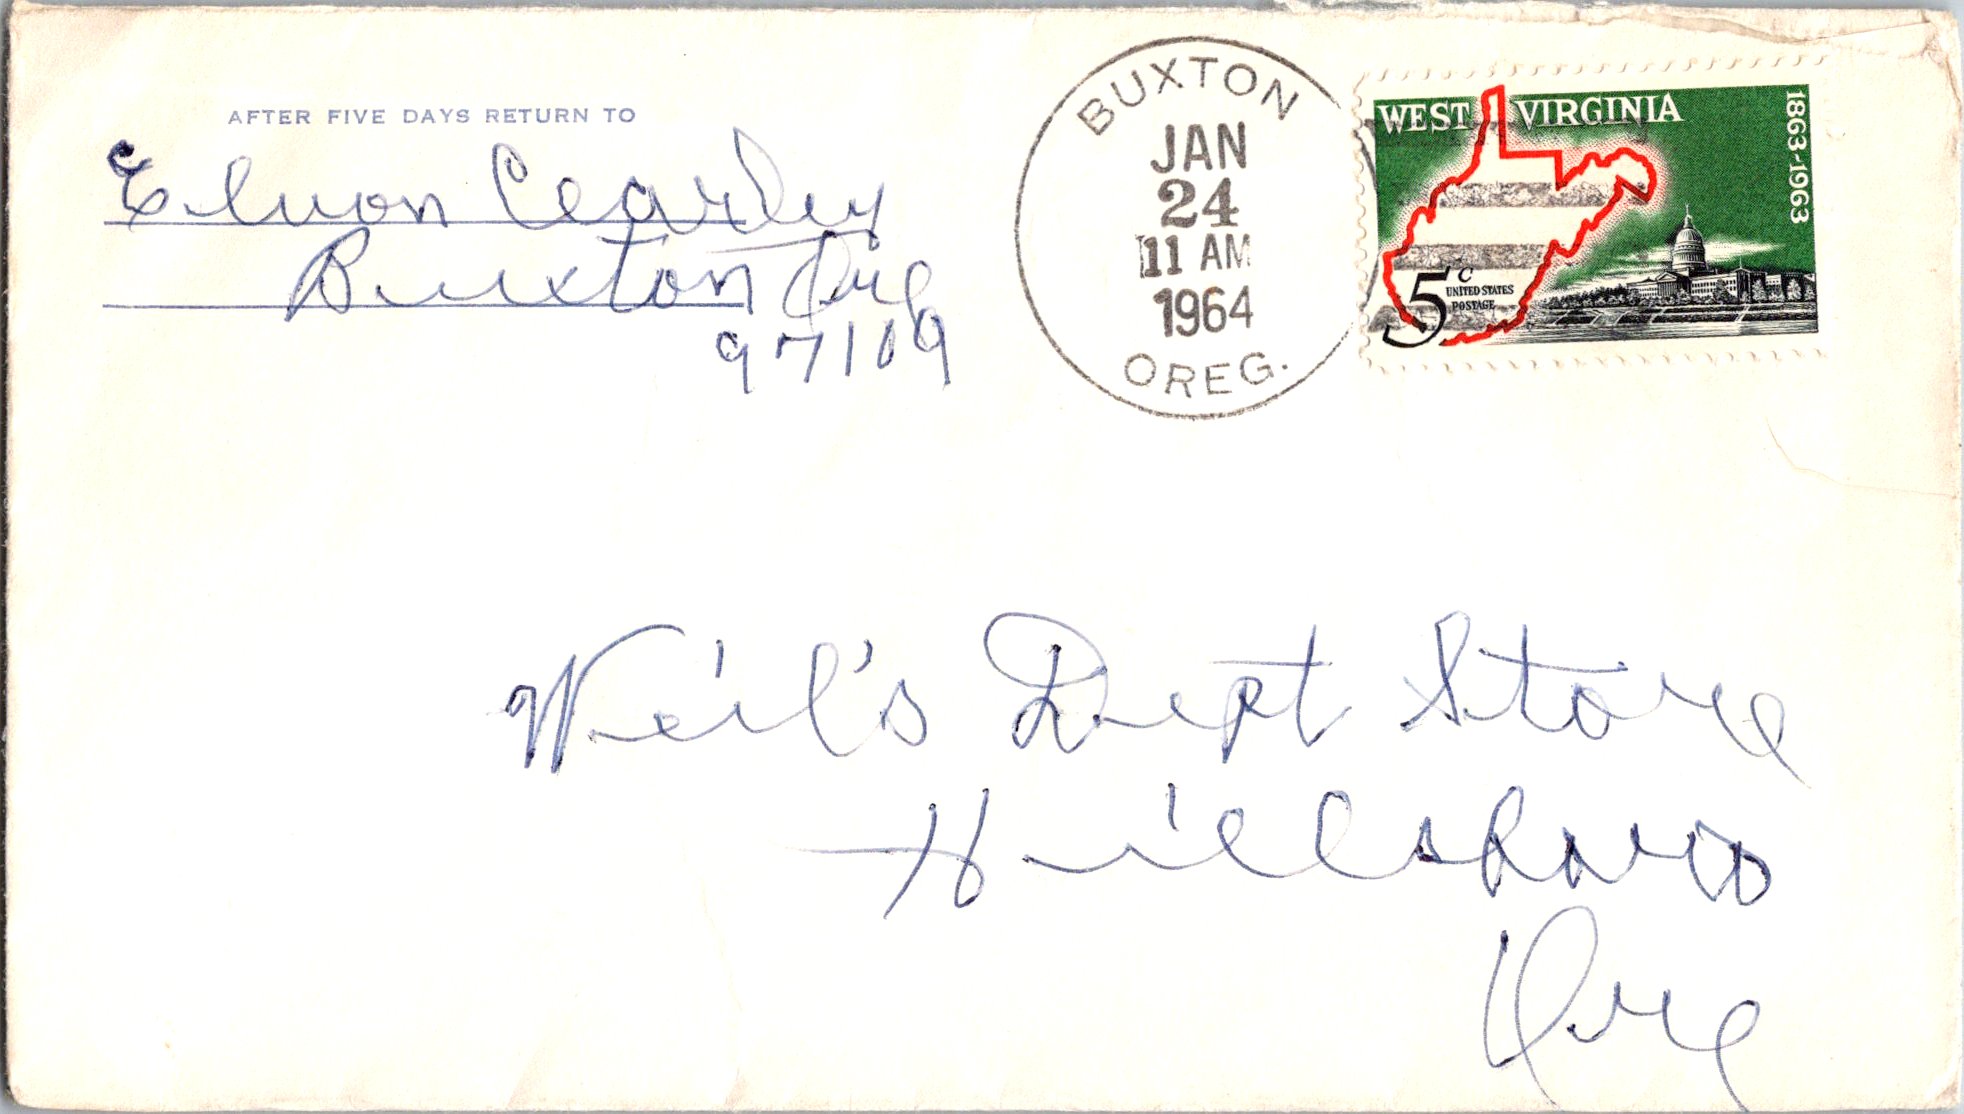 AFTER FIVE DAYS RETURN TO
Elwon Cearley
Buxton Ore
97109
BUXTON
JAN
24
11 AM
1964
OREG.
WEST VIRGINIA
1863-1963
5c
UNITED STATES
POSTAGE
Weil's Dept Store
Hillsboro
Ore